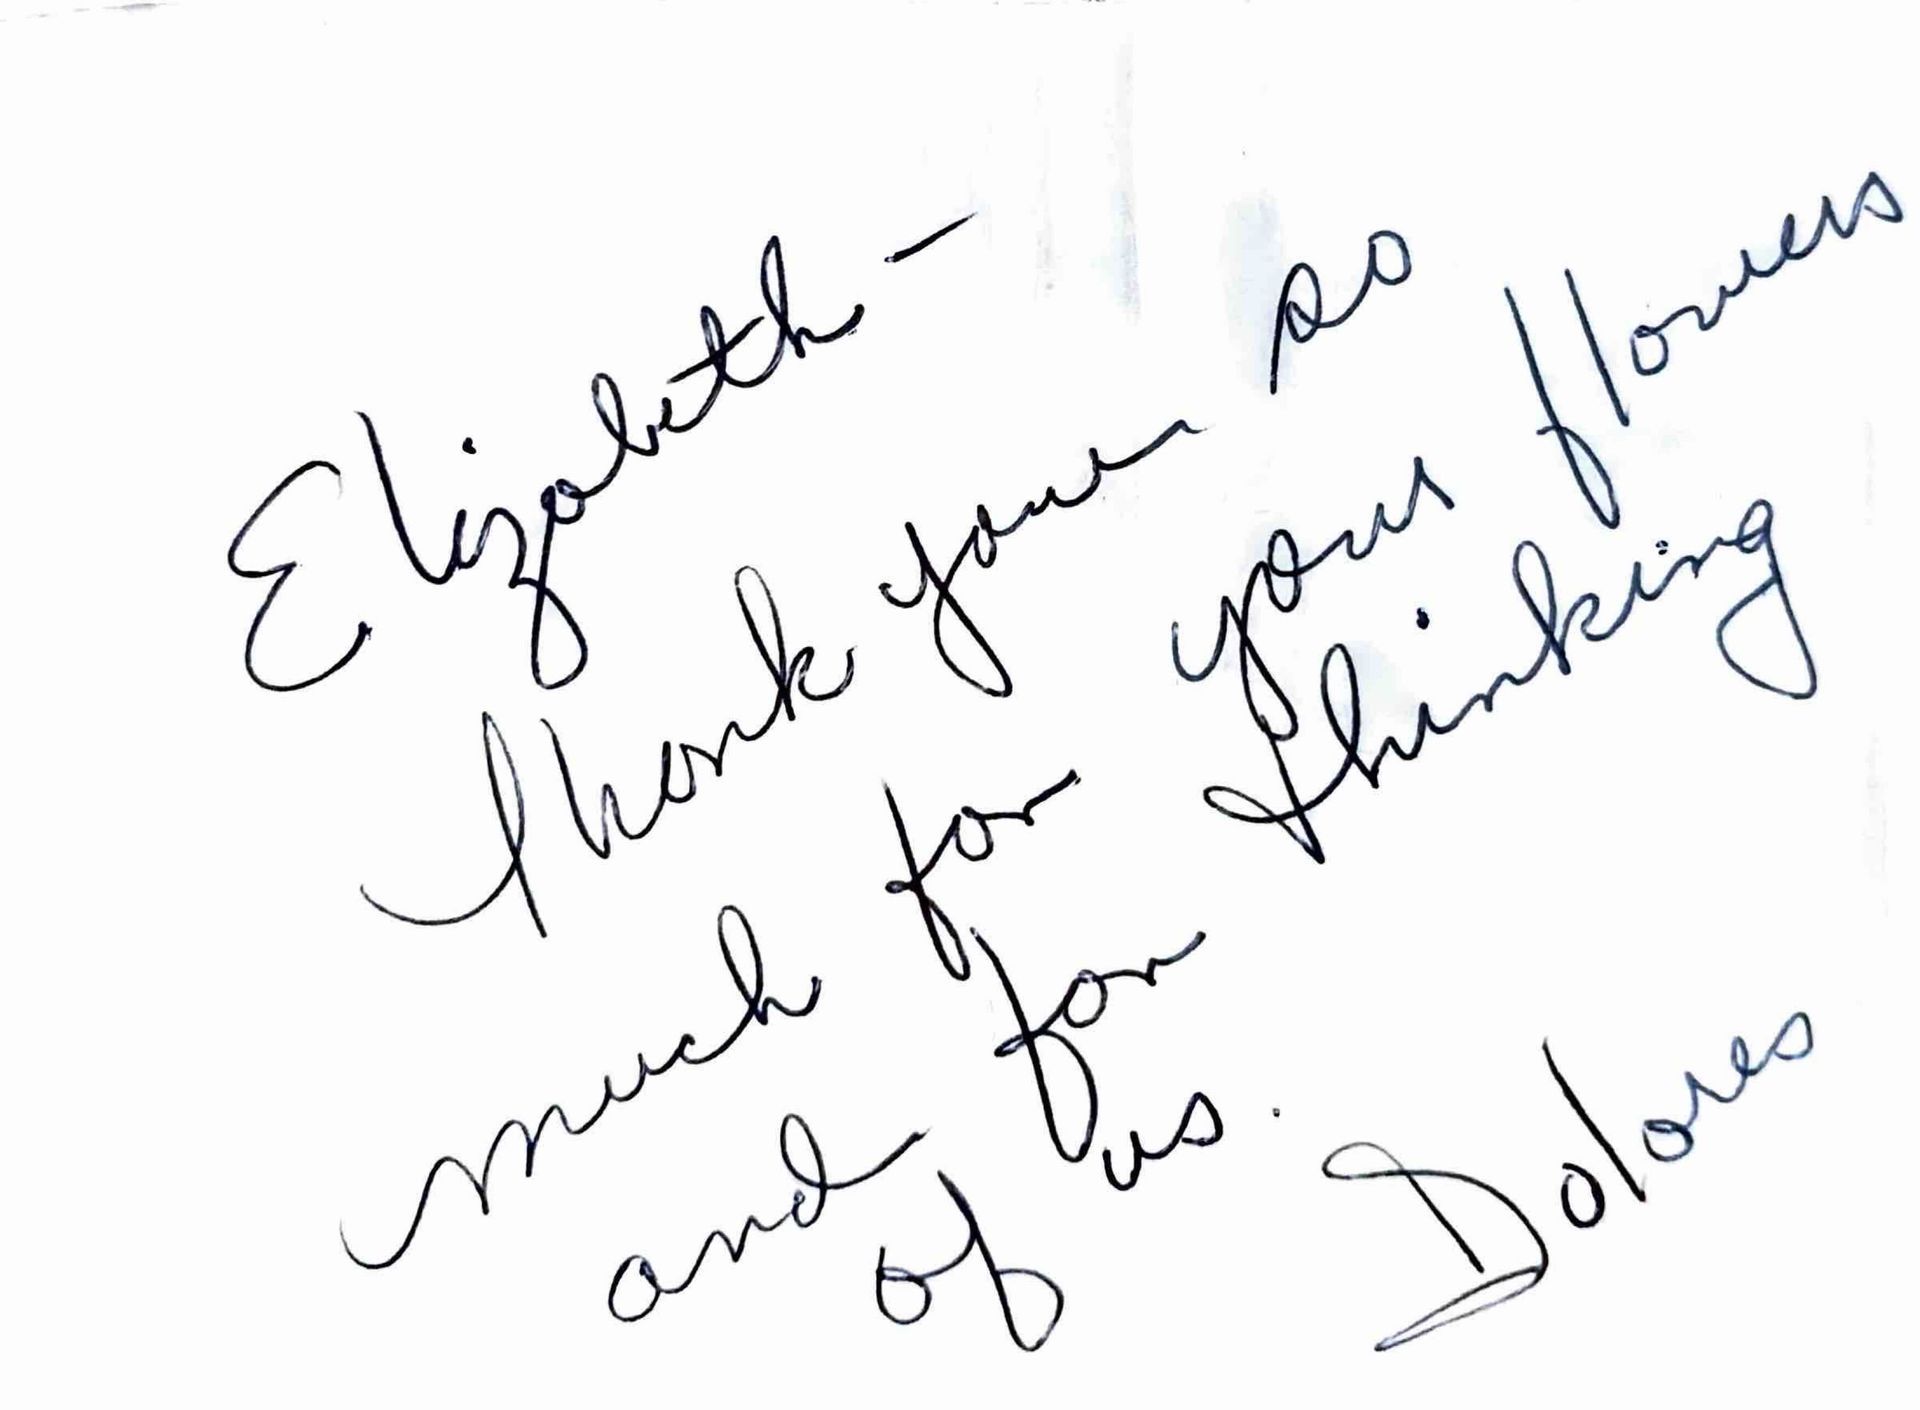 Elizabeth -
Thank you so
much for your flowers
and for thinking
of us.
Dolores